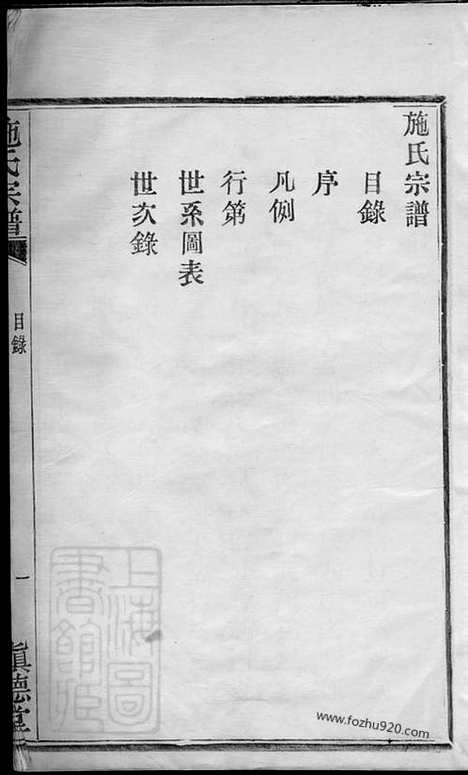 施氏宗譜
目錄
序
凡例
行第
世系圖表
世次錄
施氏宗譜
目錄
一
慎德堂
上海圖
書館藏
www.fozhu920.com